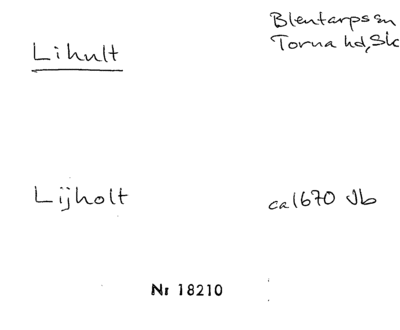 Lihult
Blentarps sn
Torna hd, Sk
Lijholt
ca 1670 Jb
Nr 18210